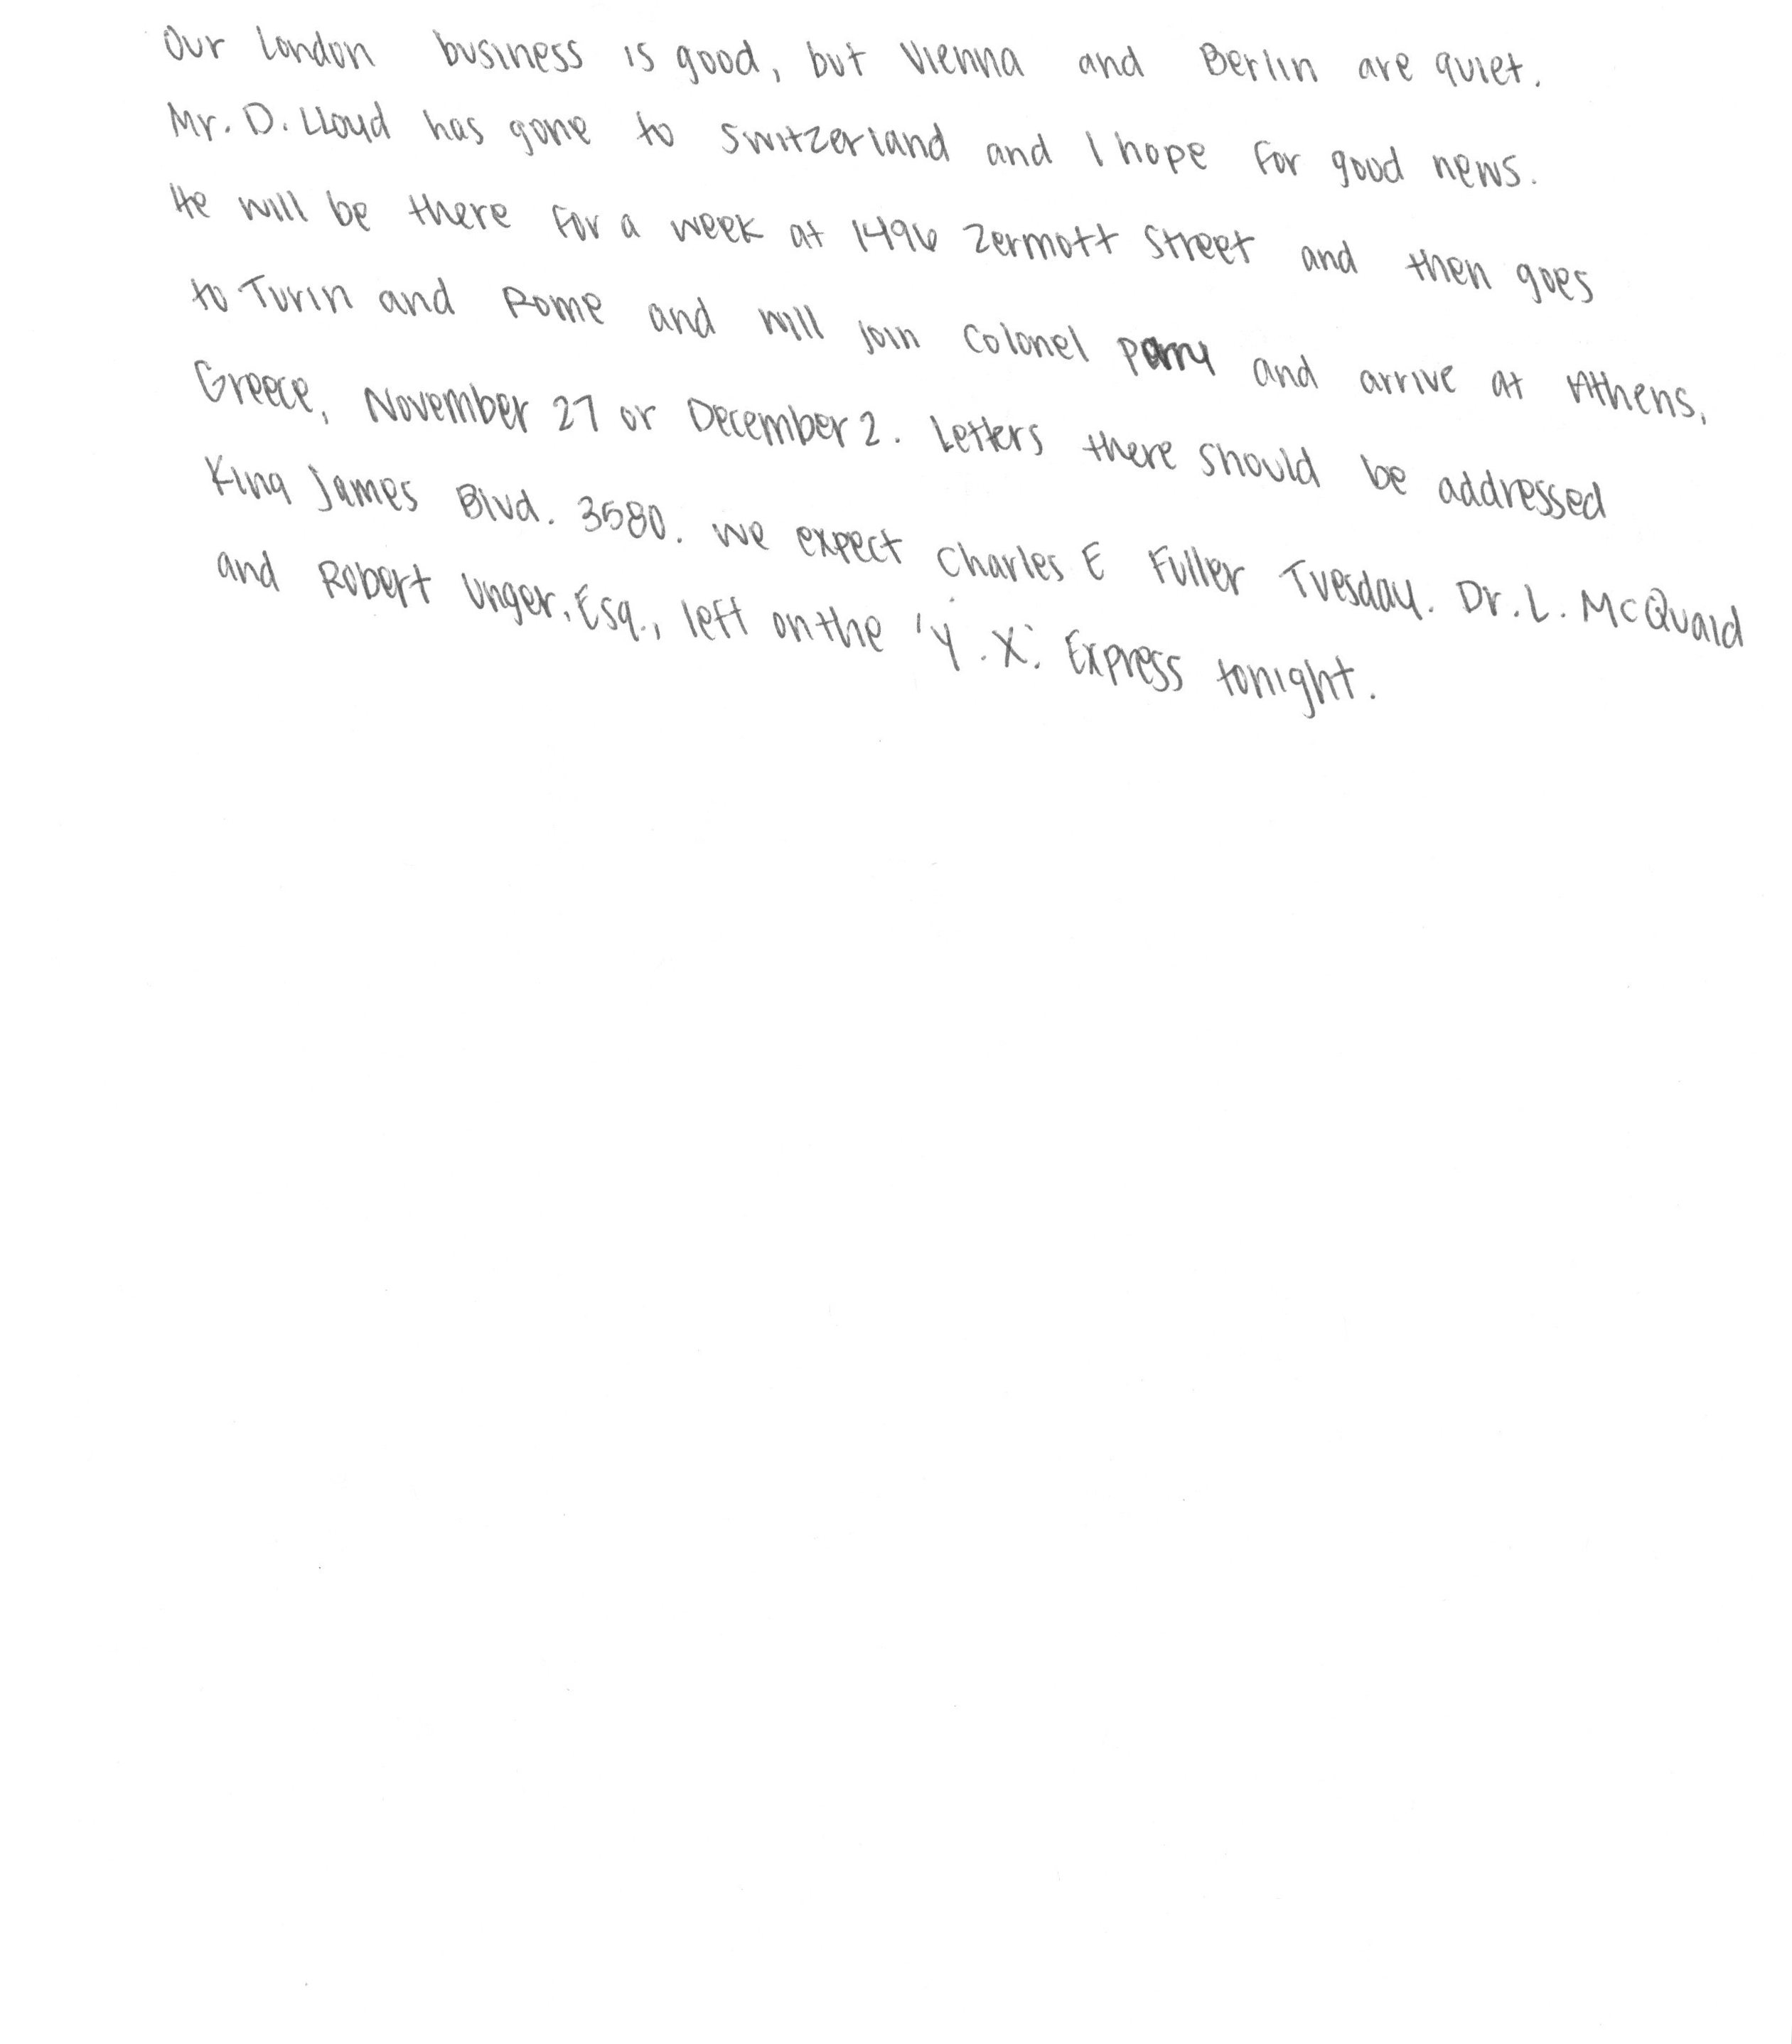 Our London business is good, but Vienna and Berlin are quiet.
Mr. D. Lloyd has gone to Switzerland and I hope for good news.
He will be there for a week at 1496 Zermott Street and then goes
to Turin and Rome and will join Colonel Parry and arrive at Athens,
Greece, November 27 or December 2. Letters there should be addressed
King James Blvd. 3580. We expect Charles E Fuller Tuesday. Dr. L. McQuaid
and Robert Unger, Esq., left on the 'Y.X.' Express tonight.